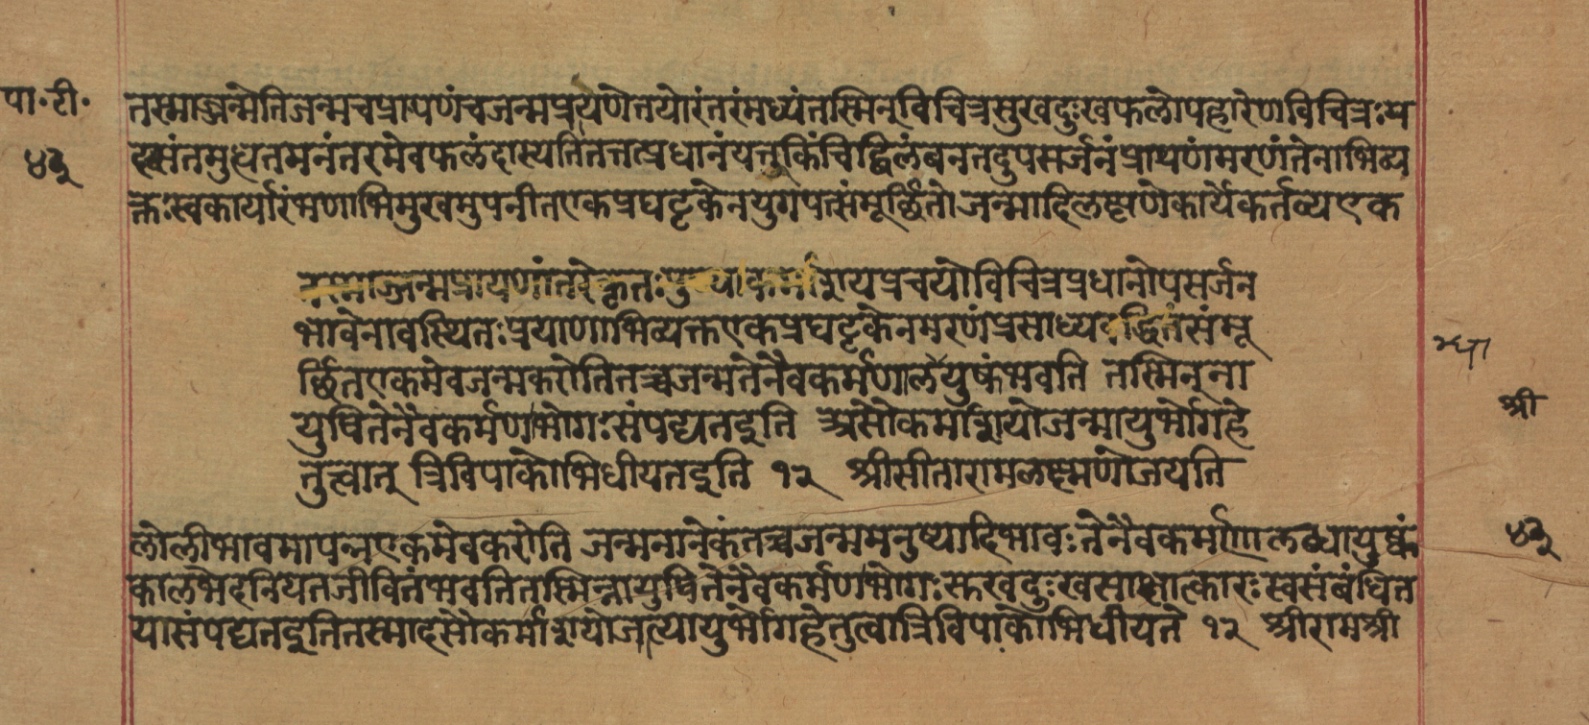 पा॰टी॰
४३
तस्माज्जन्मेतिजन्मचप्रापणंचजन्मप्रयणेतयोरंतरंमध्यंतस्मिन्विचित्रसुखदुःखफलोपहारेणविचित्रःय
मनंतरमेवफलंदास्यतितत्तत्प्रधानंयत्तुकिंचिद्विलंबनतदुपसर्जनंप्रायणंमरणंतेनाभिव्य
क्तःस्वकार्यारंभणाभिमुखमुपनीतएकप्रघट्टकेनयुगपत्संमूर्छितोजन्मादिलक्षणेकार्येकर्तव्यएक
तस्माज्जन्मप्रायणांतरेकृतःपुण्यापुण्यकर्माशयप्रचयोविचित्रप्रधानोपसर्जन
भावेनावस्थितःप्रयाणाभिव्यक्तएकप्रघट्टकेनमरणंप्रसाध्य
संमू
र्छितएकमेवजन्मकरोतितच्चजन्मतेनैवकर्मणालब्धयुष्कंभवति तस्मिन्ना
युषितेनैवकर्मणाभोगःसंपद्यतइति असौकर्माशयोजन्मायुर्भोगहे
तुत्वात् त्रिविपाकोभिधीयतइति १२ श्रीसीतारामलक्ष्मणोजयति
श्री
लोलीभावमापन्नएकमेवकरोति जन्मनानेकंतच्चजन्ममनुष्यादिभावःतेनैवकर्मणालब्धायुष्कं
४३
कालभेदनियतजीवितंभवतितस्मिन्नायुषितेनैवकर्मणाभोगःसुखदुःखसाक्षात्कारःस्वसंबंधित
यासंपद्यतइतितस्मादसौकर्माशयोजात्यायुर्भोगहेतुत्वात्रिविपाकोभिधीयते १२ श्रीरामश्री